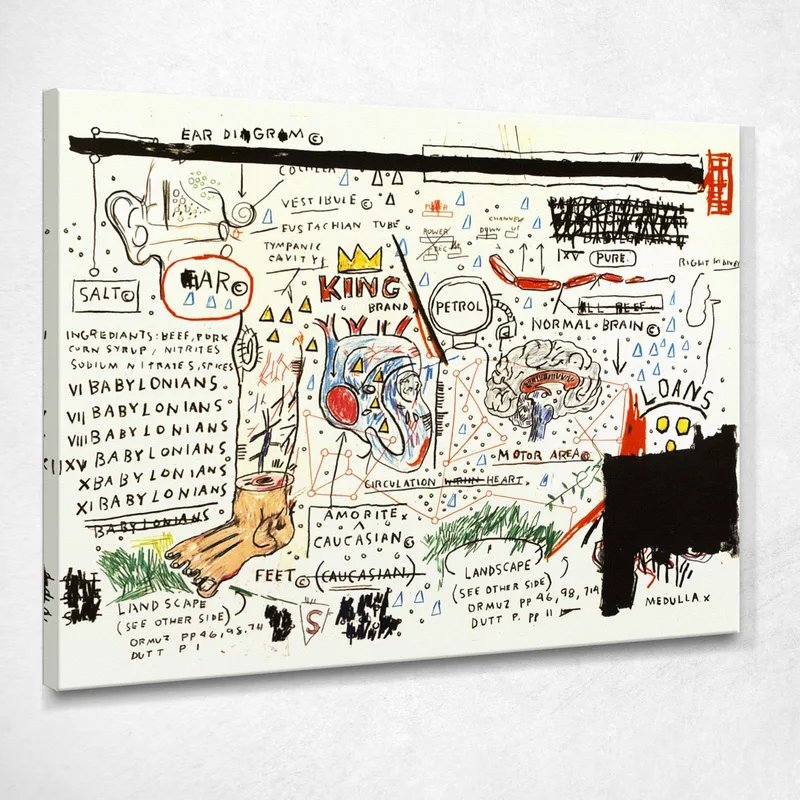 EAR DIAGRAM©
VESTIBULE©
EUSTACHIAN TUBE
TYMPANIC
CAVITY
EAR©
SALT©
KING
BRAND
POWER
CHANNEL
DOWN
IXV PURE.
PETROL
ALL BEEF
NORMAL BRAIN©
INGREDIANTS: BEEF, PORK
CORN SYRUP / NITRITES
SODIUM NITRATES, SPICES
VI BABYLONIANS.
VII BABYLONIANS.
VIII BABYLONIANS.
XV BABYLONIANS
X BABYLONIANS
XI BABYLONIANS
BABYLONIANS
LOANS
MOTOR AREA©
CIRCULATION WITHIN HEART.
AMORITE x
CAUCASIAN©
FEET© (CAUCASIAN.)
LANDSCAPE
(SEE OTHER SIDE)
ORMUZ PP 46, 98, 714
DUTT P. PP 11
MEDULLA x
LANDSCAPE
(SEE OTHER SIDE)
ORMUZ PP 46, 98. 714
DUTT P 1
S